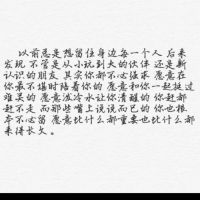 以前总是想留住身边每一个人 后来
发现 不管是从小玩到大的伙伴 还是新
认识的朋友 其实你都不必强求 愿意在
你最不堪时陪着你的 愿意和你一起挺过
难关的 愿意泼冷水让你清醒的 你赶都
赶不走 而那些嘴上说说而已的 你也根
本不必留 愿意比什么都重要也比什么都
来得长久。